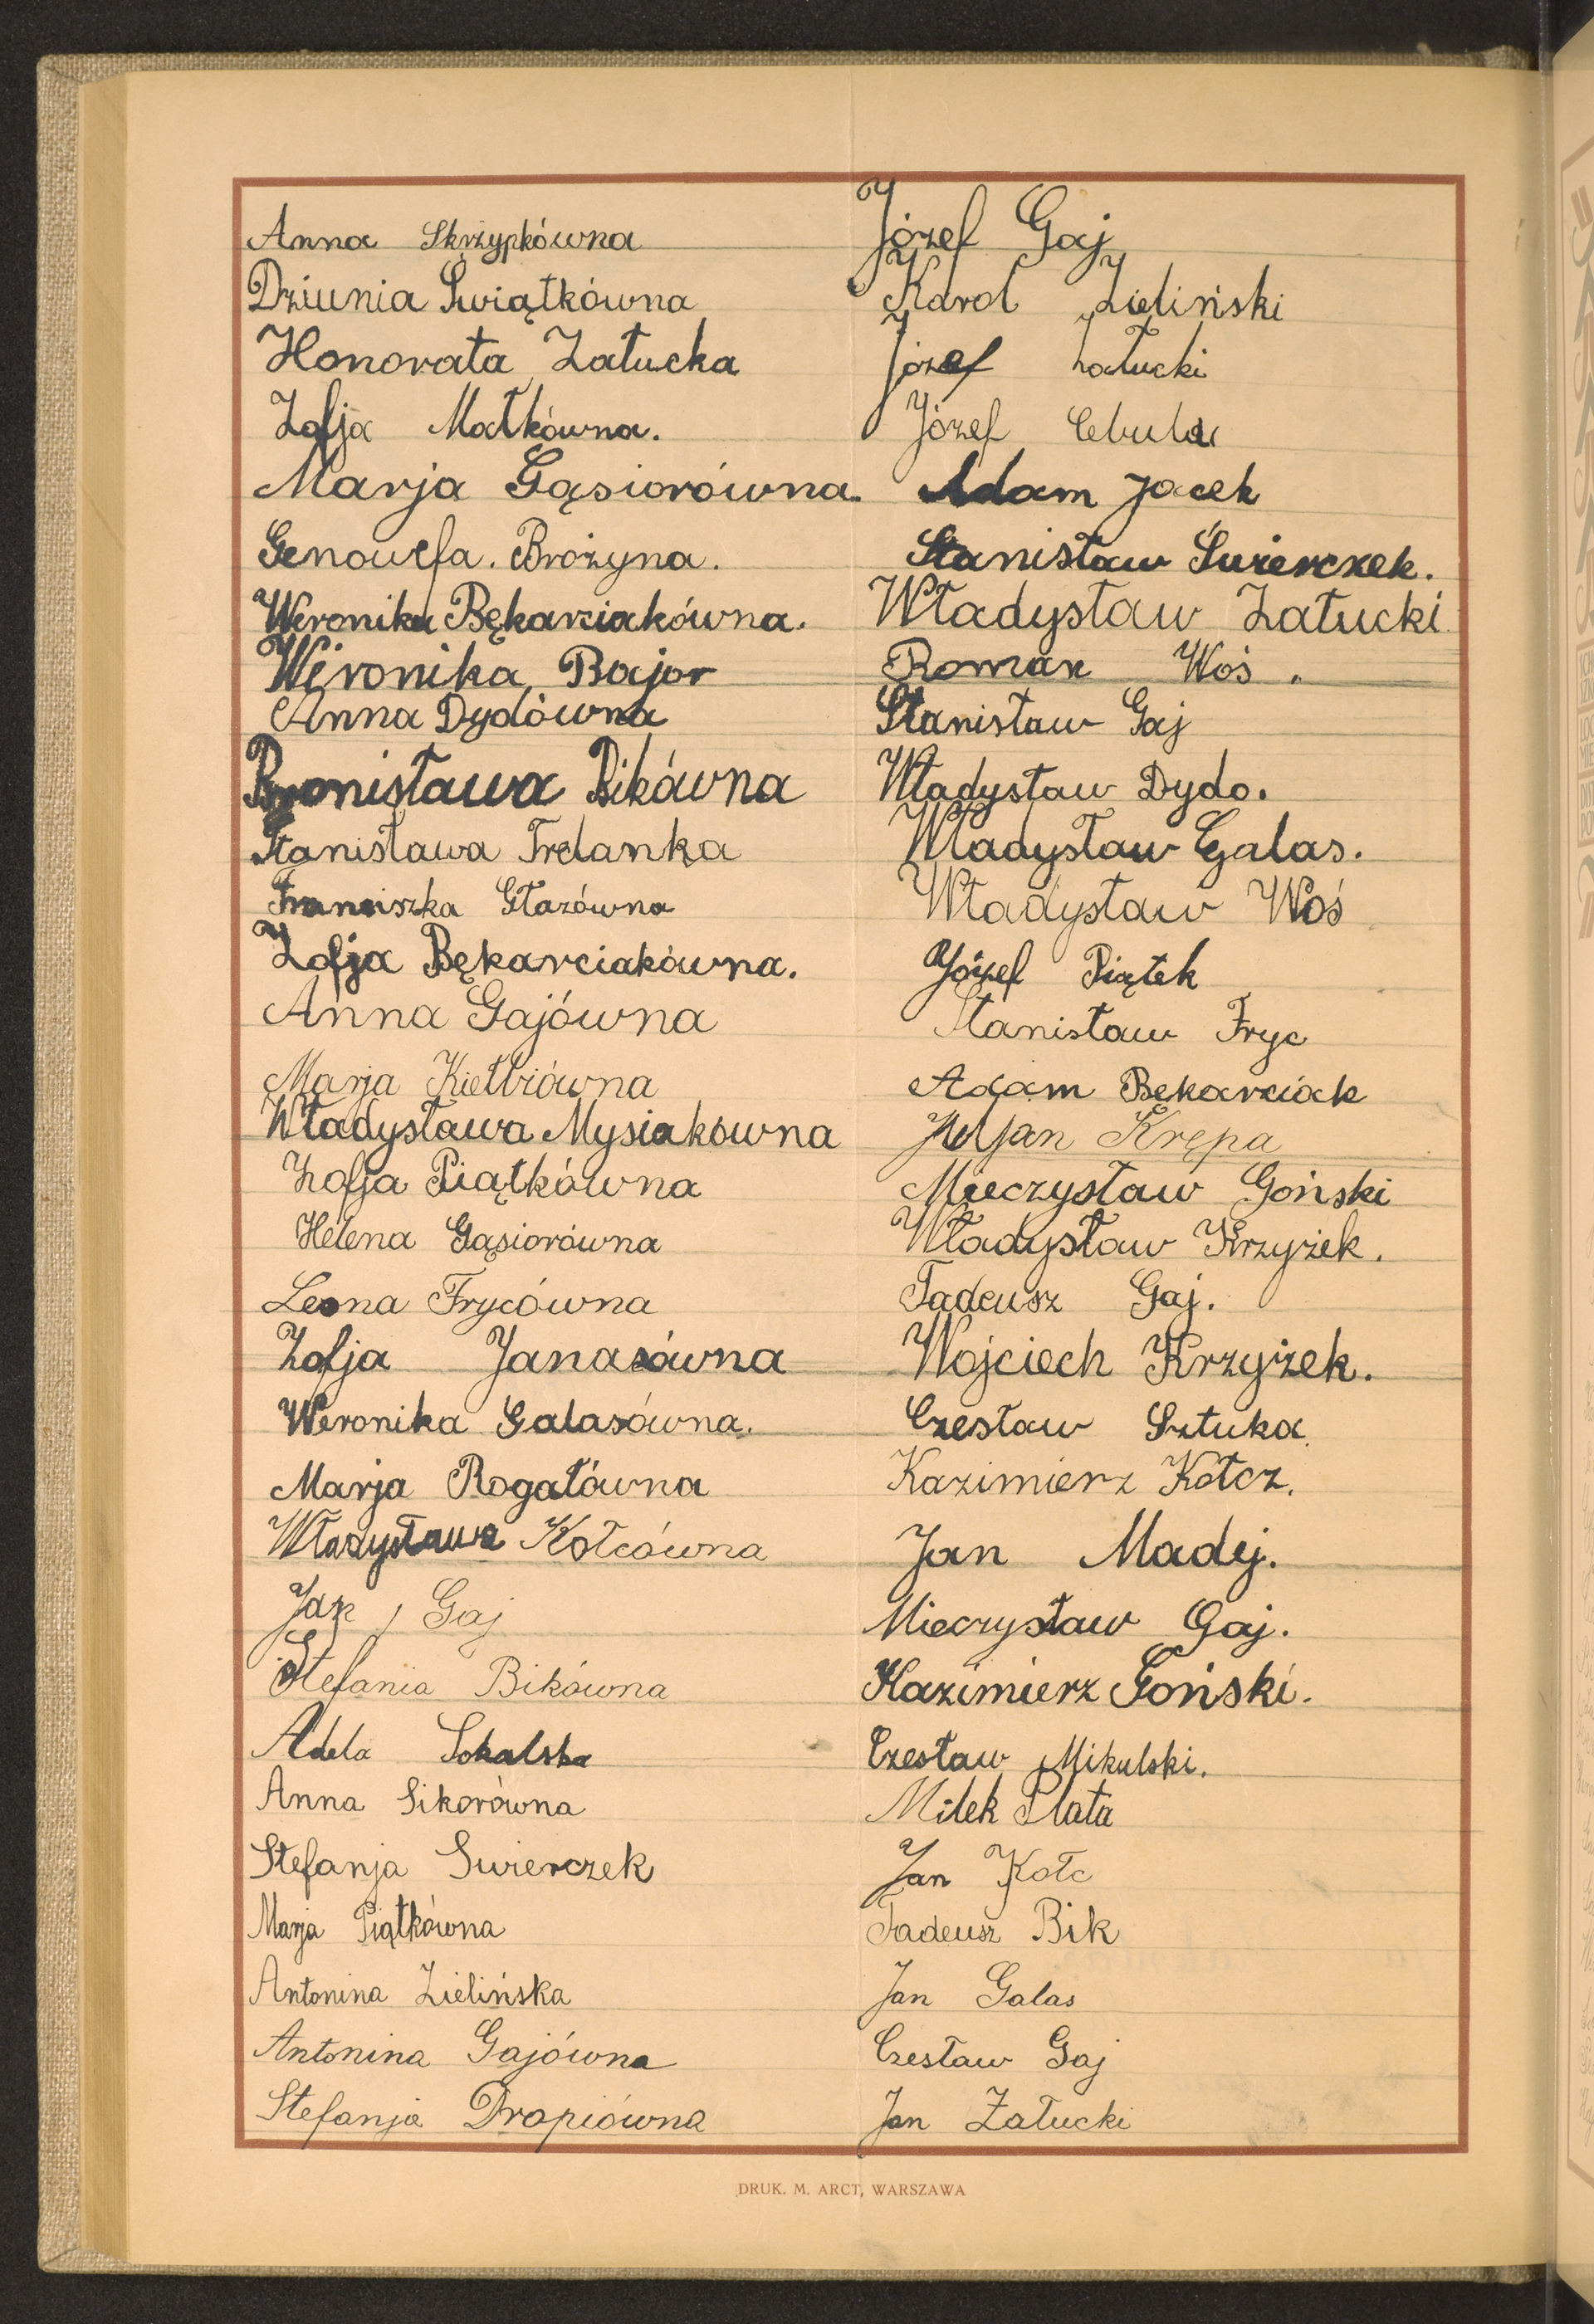 Anna Skrzypkówna
Dziunia Świątkówna
Honorata Załucka
Zofja Matkówna.
Marja Gąsiorówna.
Genowefa. Brożyna.
Weronika Bękarciakówna.
Weronika Bajor
Anna Dydówna
Bronisława Bikówna
Stanisława Trelanka
Franciszka Głazówna
Zofja Bękarciakówna.
Anna Gajówna
Marja Kiełbiówna
Władysława Mysiakówna
Zofja Piątkówna
Helena Gąsiorówna
Leona Frycówna
Zofja Janasówna
Weronika Galasówna.
Marja Rogatówna
Władysława Kołcówna
Jan Gaj
Stefania Bikówna
Adela Sokalska
Anna Sikorówna
Stefanja Swierczek
Marja Piątkówna
Antonina Zielińska
Antonina Gajówna
Stefanja Drapiówna
Józef Gaj
Karol Zieliński
Józef Załucki
Józef Cebula
Adam Jacek
Stanisław Świerczek.
Władysław Załucki
Roman Woś.
Stanisław Gaj
Władysław Dydo.
Władysław Galas.
Władysław Woś
Józef Piątek
Stanisław Fryc
Adam Bękarciak
Juljan Krępa
Mieczysław Goński
Władysław Krzyżek.
Tadeusz Gaj.
Wojciech Krzyżek.
Czesław Sztuka
Kazimierz Kołcz.
Jan Madej.
Mieczysław Gaj.
Kazimierz Goński.
Czesław Mikulski.
Milek Plata
Jan Kołc
Tadeusz Bik
Jan Galas
Czesław Gaj
Jan Załucki
DRUK. M. ARCT, WARSZAWA